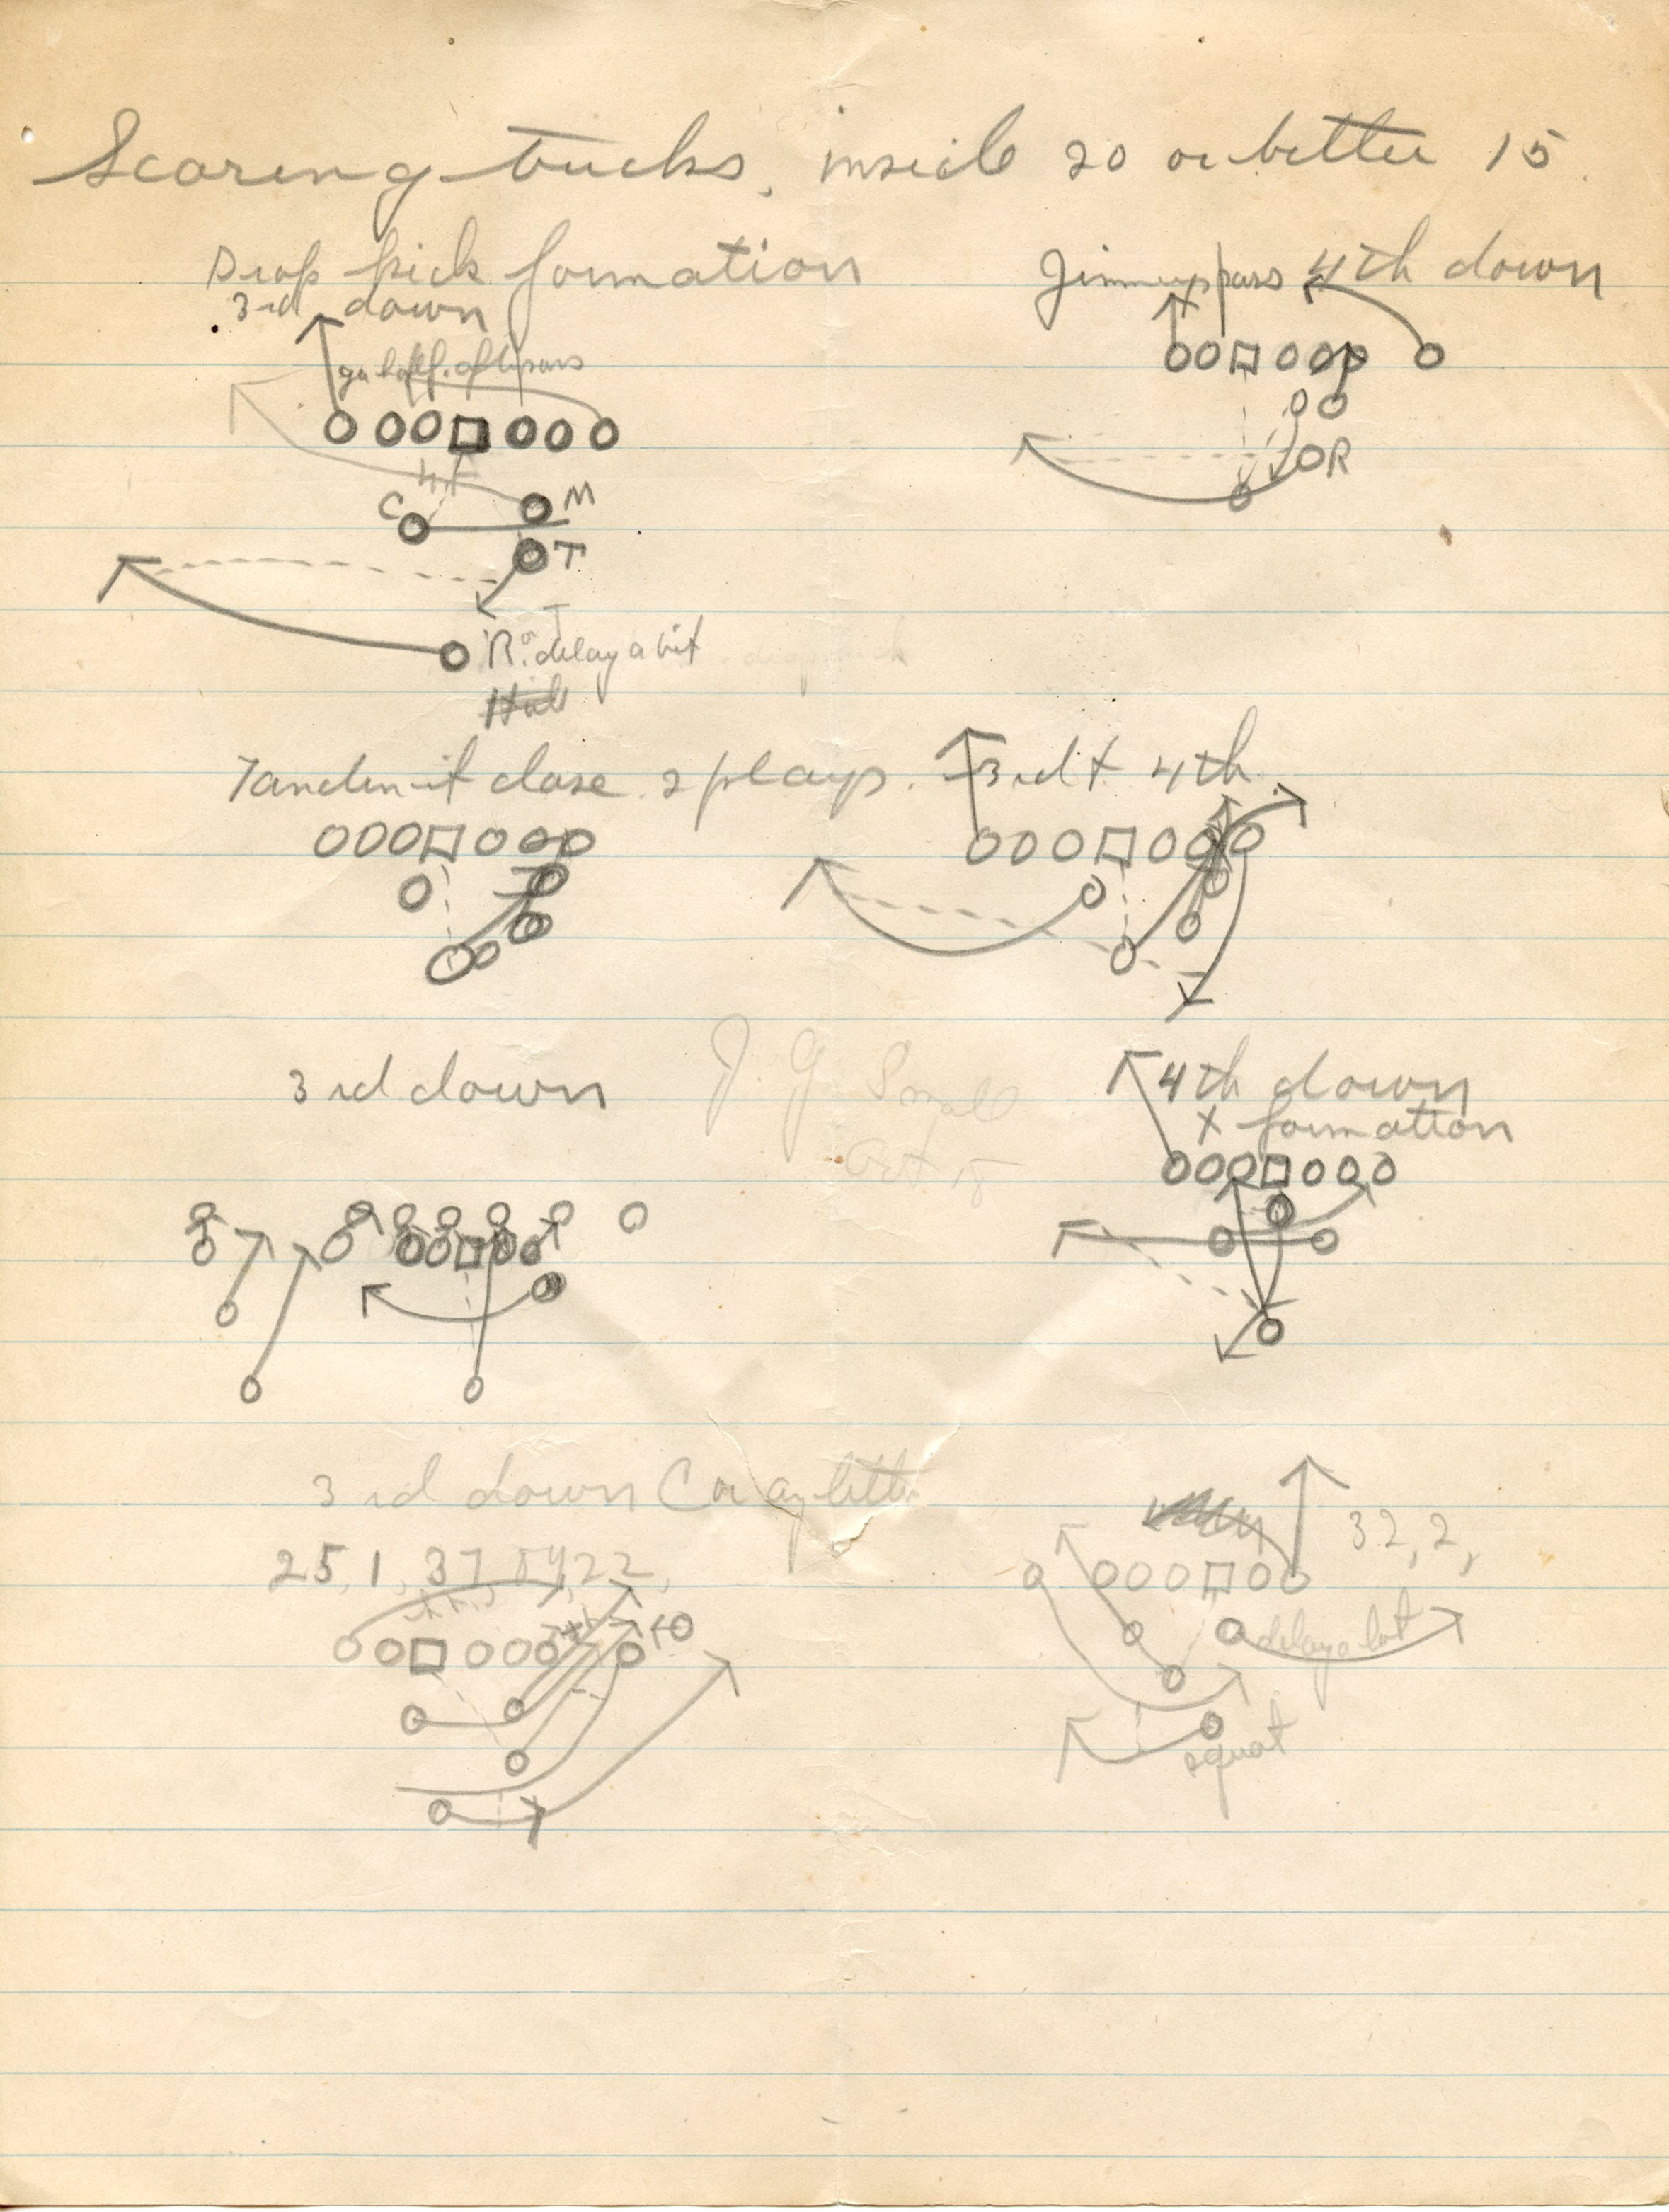 Scoring tricks, inside 20 or better 15.
Drop kick formation
3rd down
Jimmy pass 4th down
go half. of
C
M
T
R
R. or T delay a bit
Tandem if close. 2 plays. 3rd + 4th.
3rd down
J. G Small
Oct 15
4th down
X formation
3rd down C or
25, 1, 37, 22,
32, 2,
delay a bit
squat